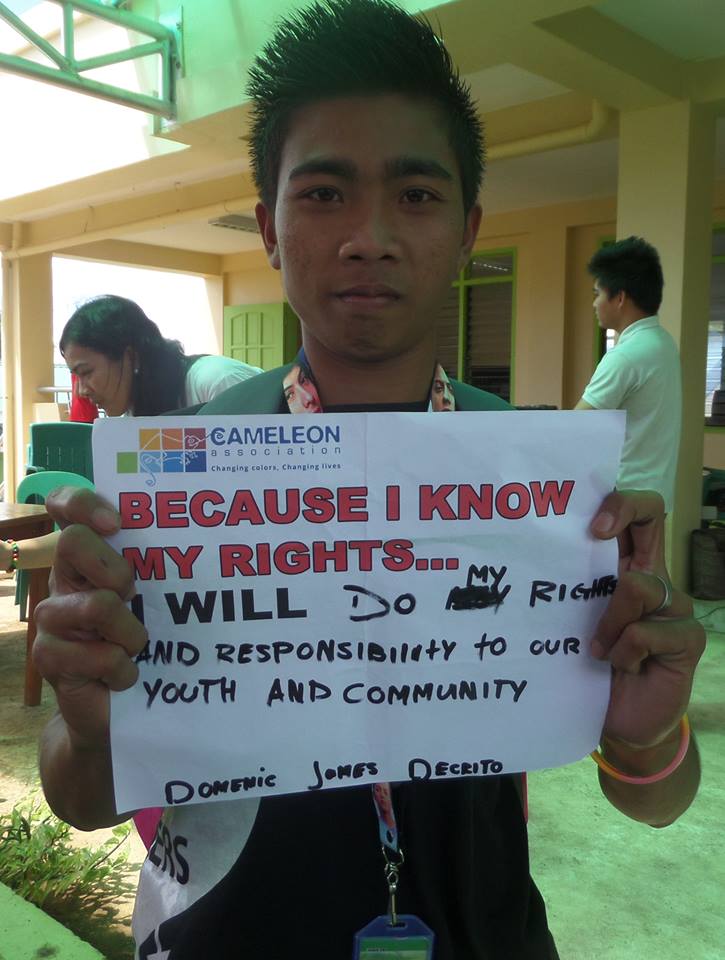 CAMELEON
association
Changing colors, Changing lives
BECAUSE I KNOW
MY RIGHTS...
I WILL DO MY RIGHTS
AND RESPONSIBILITY TO OUR
YOUTH AND COMMUNITY
DOMENIC JAMES DECRITO
ERS